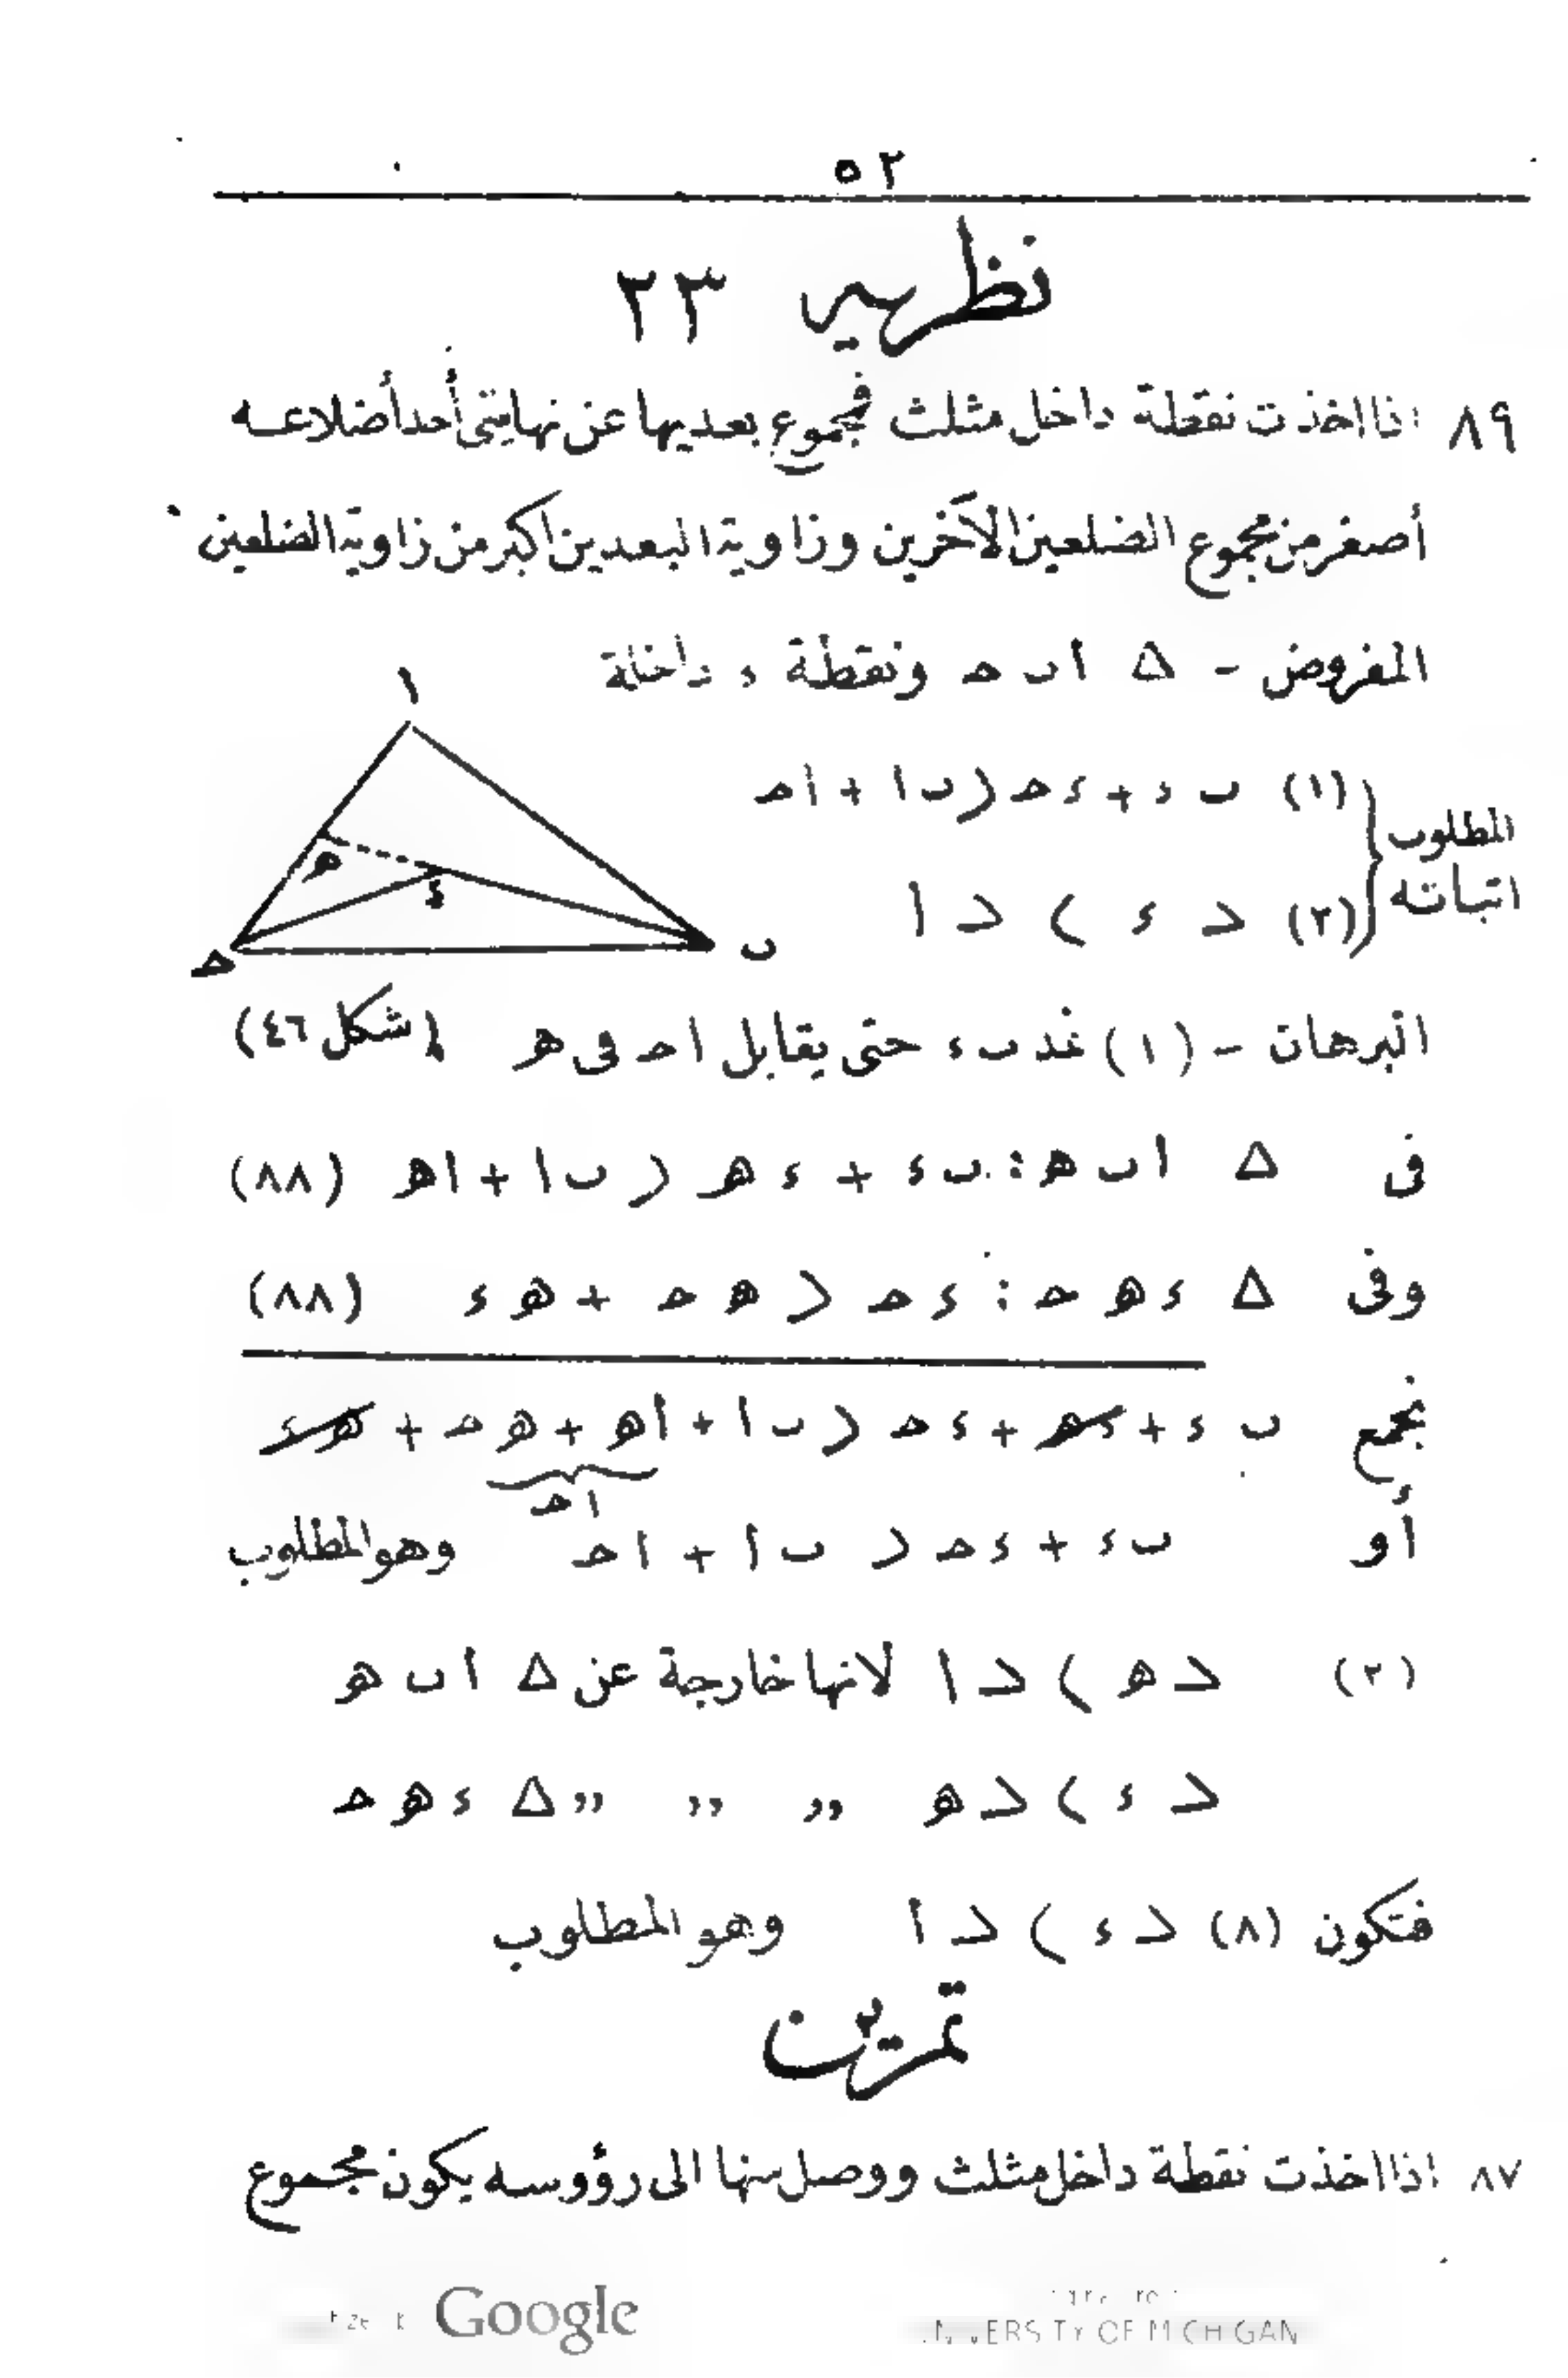 ٥٢
نظرية ٢٣
٨٩ اذا اخذت نقطة داخل مثلث فمجموع بعديها عن نهايتى أحد أضلاعه
أصغر من مجموع الضلعين الآخرين وزاوية البعدين اكبر من زاوية الضلعين
المفروض - △ ا ب ح ونقطة ء داخلة
ا
المطلوب اثباته
(١) ب ء + ء ح < ب ا + ا ح
(٢) د ء > د ا
ه
ء
ح
ب
البرهان - (١) نمد ب ء حتى يقابل ا ح فى ه (شكل ٤٦)
فى △ ا ب ه : ب ء + ء ه < ب ا + ا ه (٨٨)
وفى △ ء ه ح : ء ح < ه ح + ه ء (٨٨)
نجمع ب ء + ء ه + ء ح < ب ا + ا ه + ه ح + ه ء
ا ح
أو ب ء + ء ح < ب ا + ا ح وهو المطلوب
(٢) د ه > د ا لانها خارجة عن △ ا ب ه
د ء > د ه ,, ,, ,, △ ء ه ح
فتكون (٨) د ء > د ا وهو المطلوب
تمرين
٨٧ اذا اخذت نقطة داخل مثلث ووصل منها الى رؤوسه يكون مجموع
Google
UNIVERSITY OF MICHIGAN